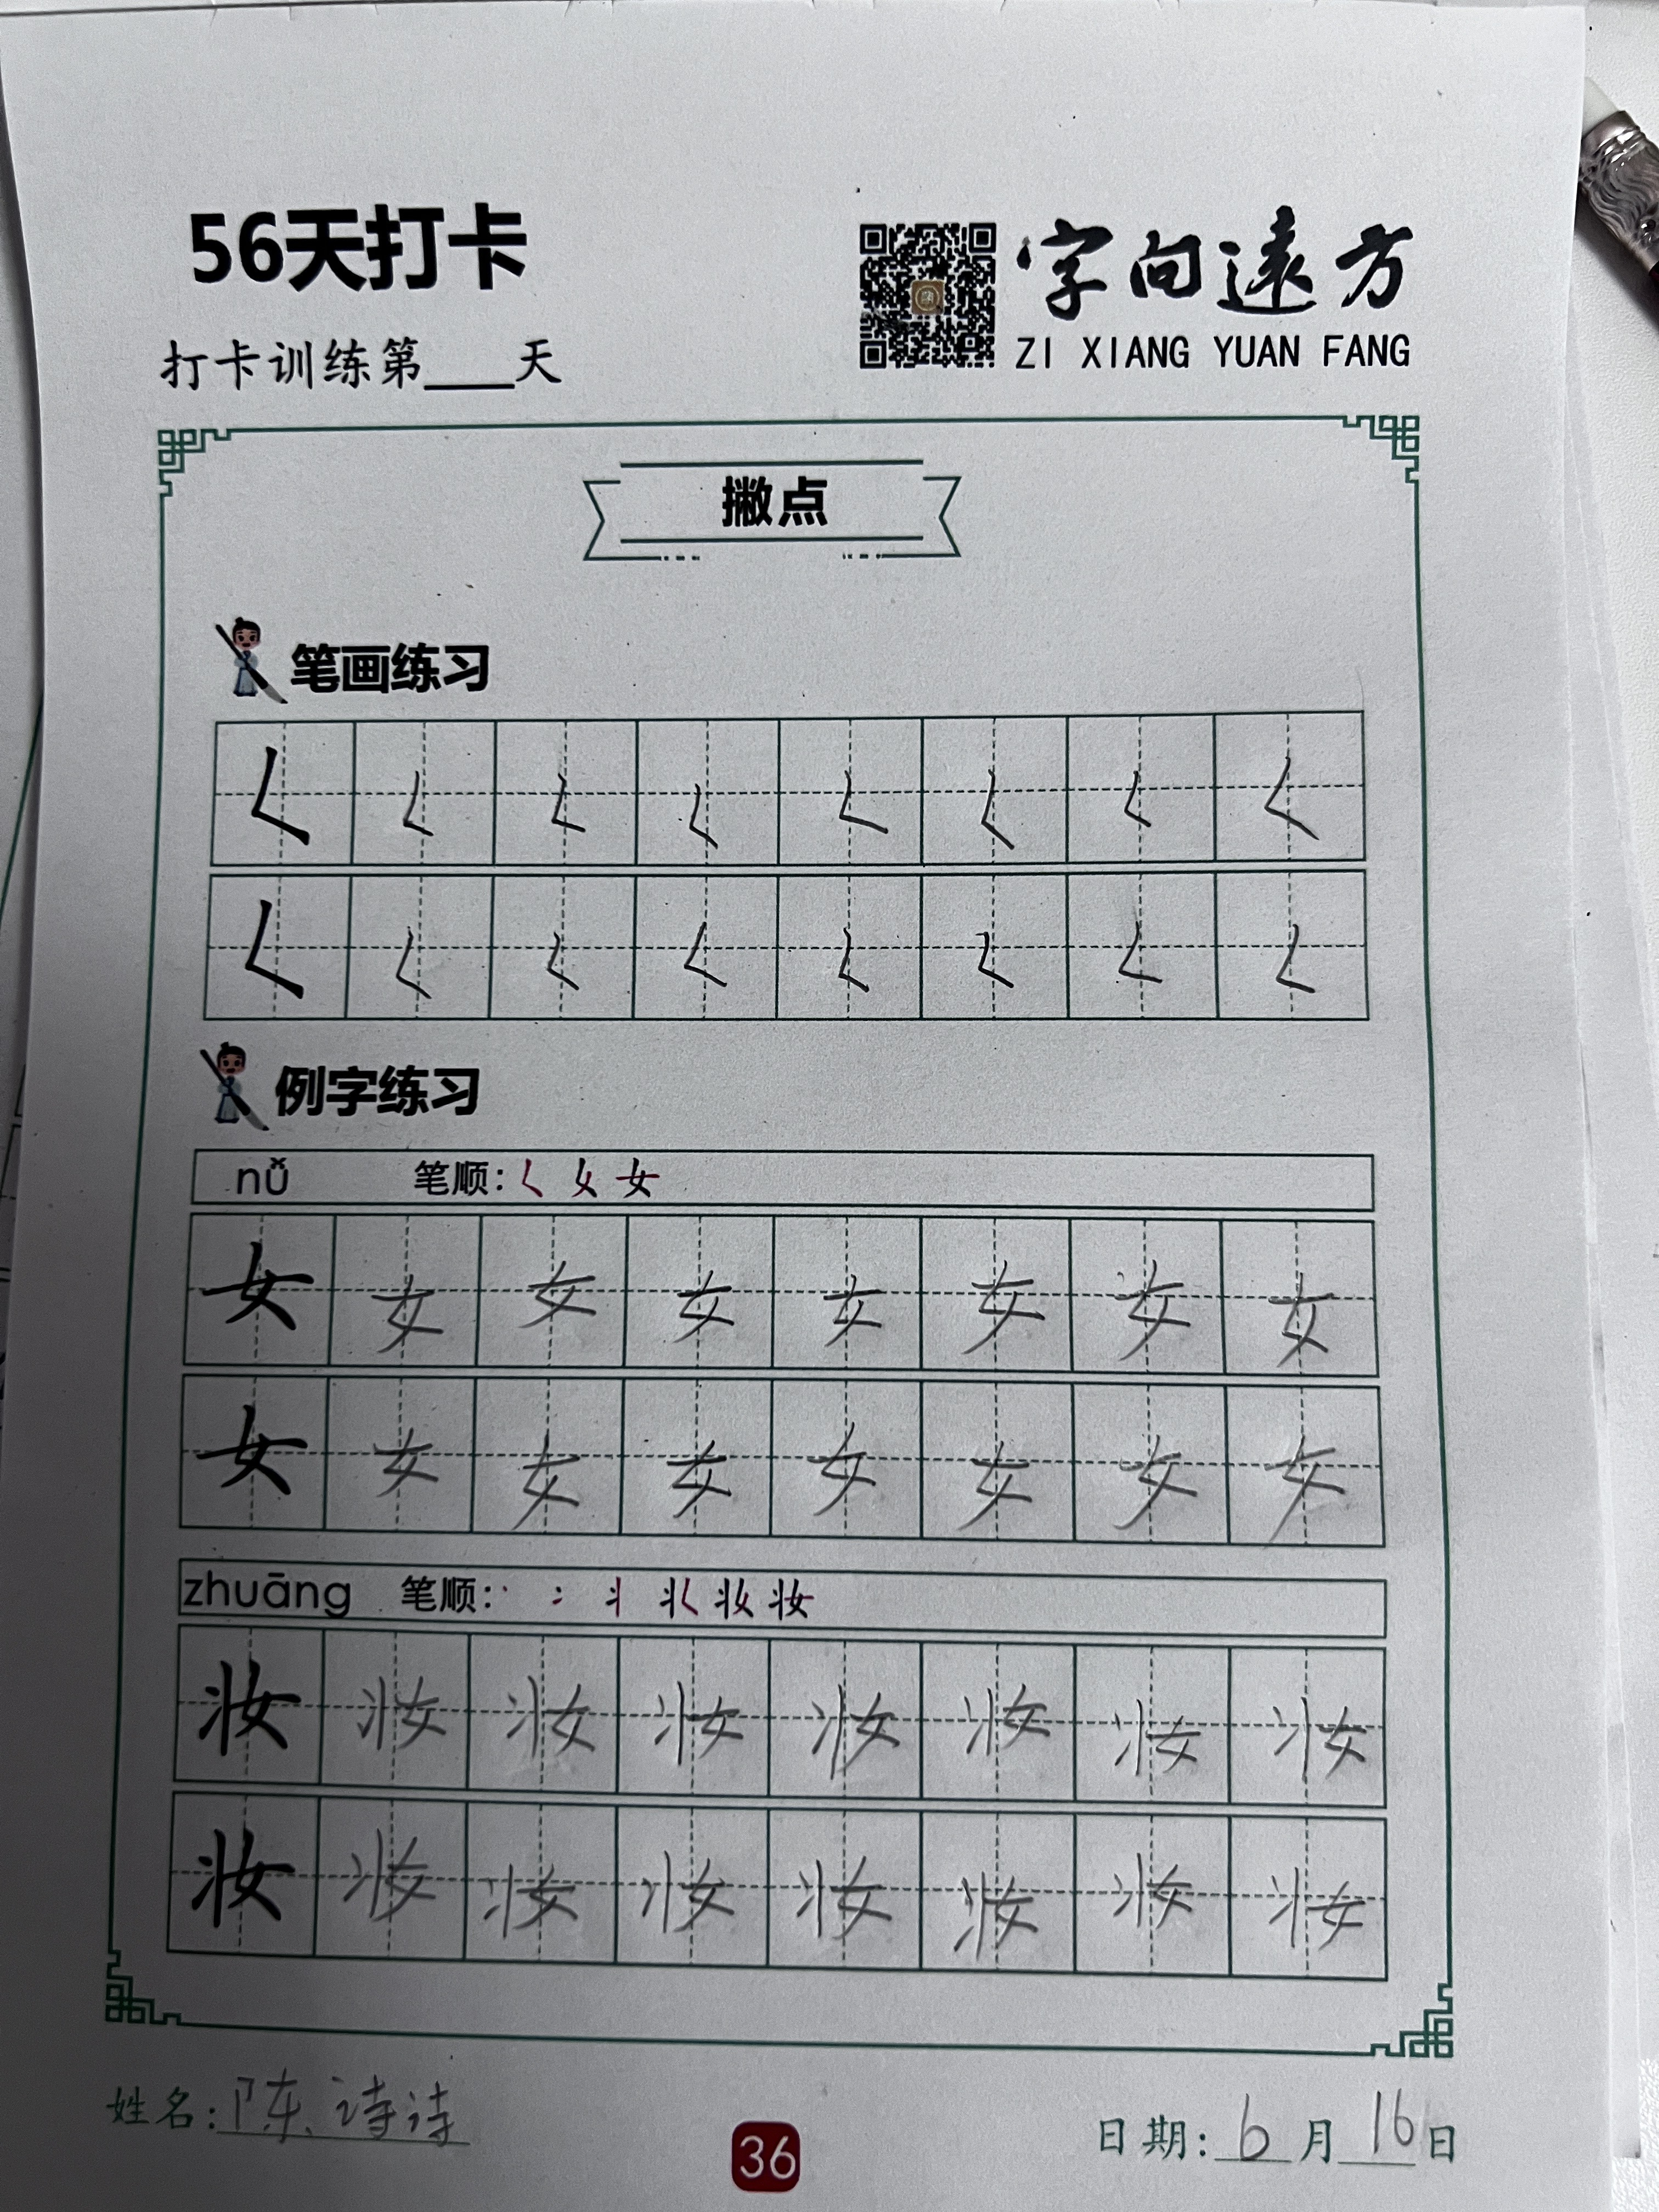 56天打卡
字向遠方
打卡训练第____天
ZI XIANG YUAN FANG
撇点
笔画练习
𡿨 𡿨 𡿨 𡿨 𡿨 𡿨 𡿨 𡿨
𡿨 𡿨 𡿨 𡿨 𡿨 𡿨 𡿨 𡿨
例字练习
nǚ 笔顺: 𡿨 女
女 女 女 女 女 女 女 女
女 女 女 女 女 女 女 女
zhuāng 笔顺: 丶 冫 丬 妆
妆 妆 妆 妆 妆 妆 妆 妆
妆 妆 妆 妆 妆 妆 妆 妆
姓名: 陈诗诗
日期: 6月16日
36